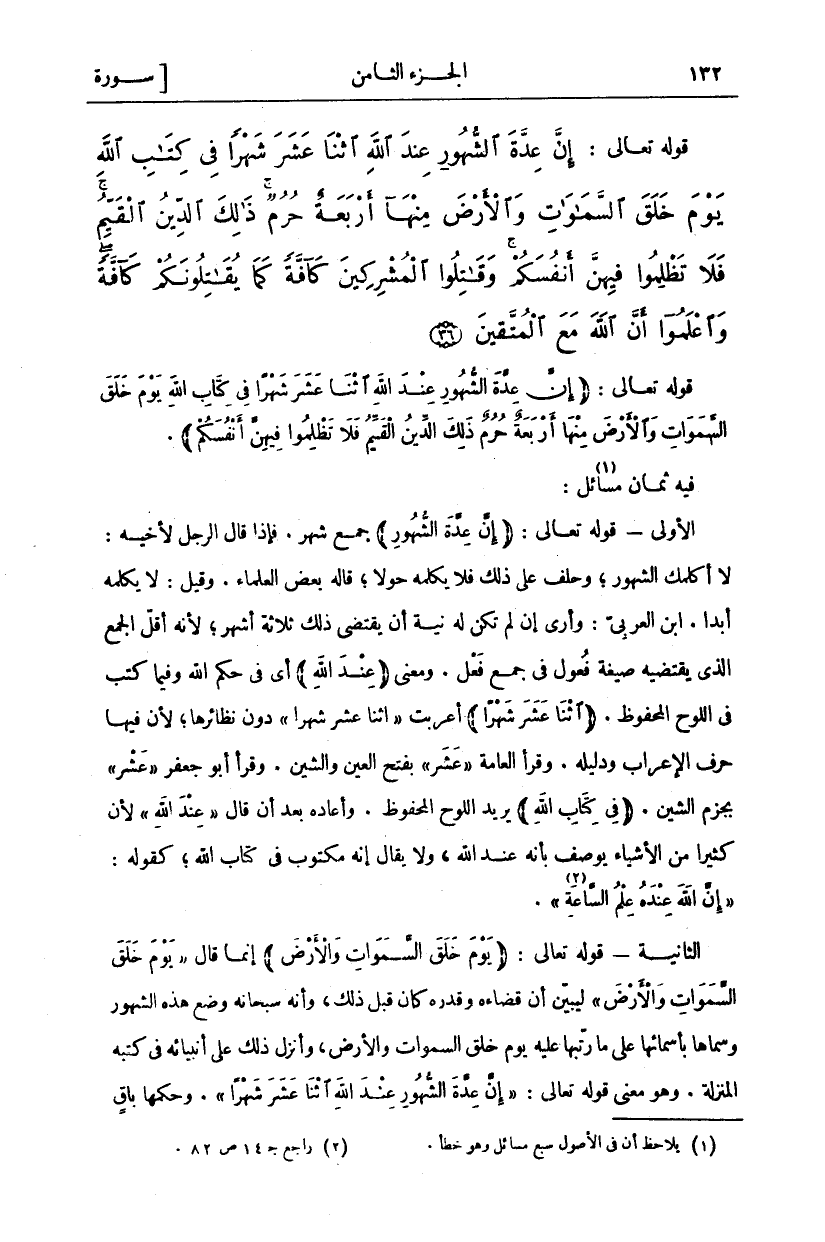 ١٣٢ الجـزء الثـامن [ سـورة
قوله تعـالى : إِنَّ عِدَّةَ ٱلشُّهُورِ عِندَ ٱللَّهِ ٱثْنَا عَشَرَ شَهْرًا فِى كِتَٰبِ ٱللَّهِ
يَوْمَ خَلَقَ ٱلسَّمَٰوَٰتِ وَٱلْأَرْضَ مِنْهَآ أَرْبَعَةٌ حُرُمٌ ۚ ذَٰلِكَ ٱلدِّينُ ٱلْقَيِّمُ ۚ
فَلَا تَظْلِمُوا فِيهِنَّ أَنفُسَكُمْ ۚ وَقَٰتِلُوا ٱلْمُشْرِكِينَ كَآفَّةً كَمَا يُقَٰتِلُونَكُمْ كَآفَّةً ۚ
وَٱعْلَمُوٓا أَنَّ ٱللَّهَ مَعَ ٱلْمُتَّقِينَ ﴿٣٦﴾
قوله تعـالى : ﴿ إِنَّ عِدَّةَ الشُّهُورِ عِنْـدَ اللهِ ٱثْنَـا عَشَرَ شَهْرًا فِى كِتَابِ اللهِ يَوْمَ خَلَقَ
السَّمَوَاتِ وَٱلْأَرْضَ مِنْهَا أَرْبَعَةٌ حُرُمٌ ذَلِكَ الدِّينُ الْقَيِّمُ فَلَا تَظْلِمُوا فِيهِنَّ أَنْفُسَكُمْ ﴾ .
فيه ثمـان مسائل(١) :
الأولى – قوله تعـالى : ﴿ إِنَّ عِدَّةَ الشُّهُورِ ﴾ جمـع شهر . فإذا قال الرجل لأخيـه :
لا أكلمك الشهور ؛ وحلف على ذلك فلا يكلمه حولا ؛ قاله بعض العلماء . وقيل : لا يكلمه
أبدا . ابن العربىّ : وأرى إن لم تكن له نيـة أن يقتضى ذلك ثلاثة أشهر ؛ لأنه أقلّ الجمع
الذى يقتضيه صيغة فُعول فى جمـع فَعْل . ومعنى ﴿ عِنْـدَ اللهِ ﴾ أى فى حكم الله وفيما كتب
فى اللوح المحفوظ . ﴿ ٱثْنَا عَشَرَ شَهْرًا ﴾ أعربت « اثنا عشر شهرا » دون نظائرها ؛ لأن فيهـا
حرف الإعراب ودليله . وقرأ العامة « عَشَر » بفتح العين والشين . وقرأ أبو جعفر « عَشْر »
بجزم الشين . ﴿ فِى كِتَابِ اللهِ ﴾ يريد اللوح المحفوظ . وأعاده بعد أن قال « عِنْدَ اللهِ » لأن
كثيرا من الأشياء يوصف بأنه عنـد الله ، ولا يقال إنه مكتوب فى كتاب الله ؛ كقوله :
« إِنَّ اللَّهَ عِنْدَهُ عِلْمُ السَّاعَةِ(٢) » .
الثانيـة – قوله تعالى : ﴿ يَوْمَ خَلَقَ السَّـمَوَاتِ وَالْأَرْضَ ﴾ إنمـا قال « يَوْمَ خَلَقَ
السَّمَوَاتِ وَالْأَرْضَ » ليبيّن أن قضاءه وقدره كان قبل ذلك ، وأنه سبحانه وضع هذه الشهور
وسماها بأسمائها على ما رتّبها عليه يوم خلق السموات والأرض ، وأنزل ذلك على أنبيائه فى كتبه
المنزلة . وهو معنى قوله تعالى : « إِنَّ عِدَّةَ الشُّهُورِ عِنْـدَ اللهِ ٱثْنَا عَشَرَ شَهْرًا » . وحكمها باقٍ
(١) يلاحظ أن فى الأصول سبع مسائل وهو خطأ . (٢) راجع جـ ١٤ ص ٨٢ .